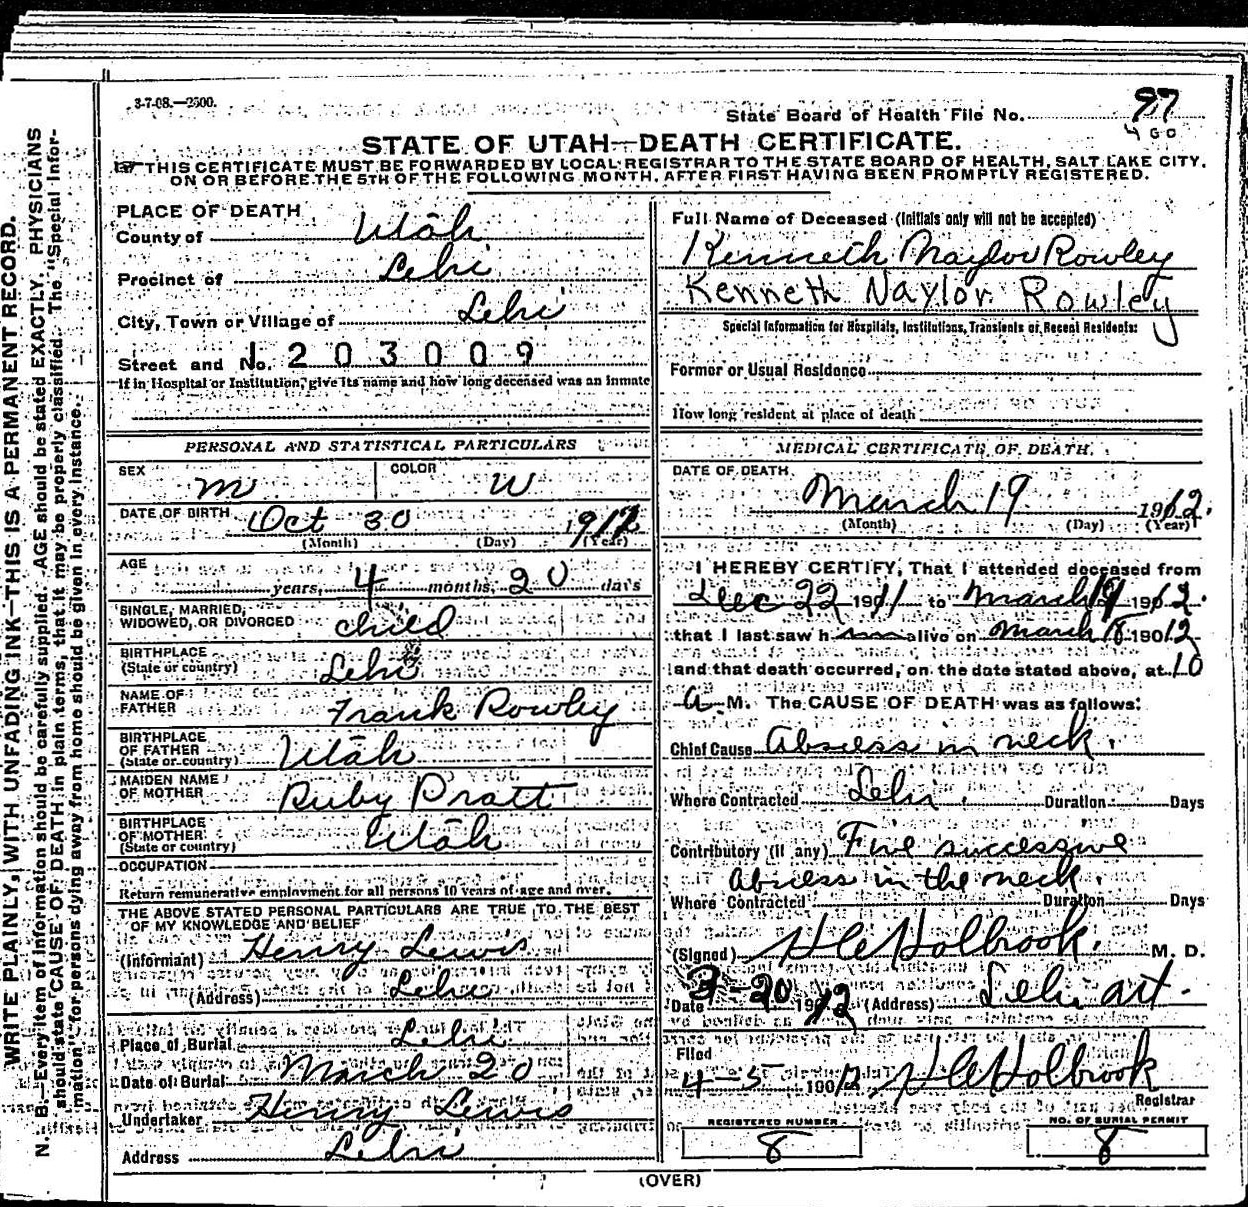 3-7-08.—2500.
State Board of Health File No. 97
460
STATE OF UTAH—DEATH CERTIFICATE.
THIS CERTIFICATE MUST BE FORWARDED BY LOCAL REGISTRAR TO THE STATE BOARD OF HEALTH, SALT LAKE CITY,
ON OR BEFORE THE 5TH OF THE FOLLOWING MONTH, AFTER FIRST HAVING BEEN PROMPTLY REGISTERED.
WRITE PLAINLY, WITH UNFADING INK—THIS IS A PERMANENT RECORD.
N. B.—Every item of information should be carefully supplied. AGE should be stated EXACTLY. PHYSICIANS
should state CAUSE OF DEATH in plain terms, that it may be properly classified. The "Special Infor-
mation" for persons dying away from home should be given in every instance.
PLACE OF DEATH
County of Utah
Precinct of Lehi
City, Town or Village of Lehi
Street and No. 1203009
If in Hospital or Institution, give its name and how long deceased was an inmate
Full Name of Deceased (Initials only will not be accepted)
Kenneth Naylor Rowley
Kenneth Naylor Rowley
Special Information for Hospitals, Institutions, Transients or Recent Residents:
Former or Usual Residence
How long resident at place of death
PERSONAL AND STATISTICAL PARTICULARS
SEX m COLOR W
DATE OF BIRTH Oct 30 1912
(Month) (Day) (Year)
AGE
years, 4 months, 20 days
SINGLE, MARRIED,
WIDOWED, OR DIVORCED child
BIRTHPLACE
(State or country) Lehi
NAME OF
FATHER Frank Rowley
BIRTHPLACE
OF FATHER
(State or country) Utah
MAIDEN NAME
OF MOTHER Ruby Pratt
BIRTHPLACE
OF MOTHER
(State or country) Utah
OCCUPATION
Return remunerative employment for all persons 10 years of age and over.
THE ABOVE STATED PERSONAL PARTICULARS ARE TRUE TO THE BEST
OF MY KNOWLEDGE AND BELIEF
(Informant) Henry Lewis
(Address) Lehi
Place of Burial Lehi
Date of Burial March 20
Undertaker Henry Lewis
Address Lehi
MEDICAL CERTIFICATE OF DEATH.
DATE OF DEATH.
March 19 1912.
(Month) (Day) (Year)
I HEREBY CERTIFY, That I attended deceased from
Dec 22 1911 to March 19 1912.
that I last saw h alive on March 18 1912
and that death occurred, on the date stated above, at 10
a M. The CAUSE OF DEATH was as follows:
Chief Cause Abscess in neck.
Where Contracted Lehi. Duration Days
Contributory (if any) Five successive
Abscess in the neck.
Where Contracted Duration Days
(Signed) H C Holbrook. M. D.
Date 3-20 1912 (Address) Lehi
Filed
4-5 1912 H C Holbrook
Registrar
REGISTERED NUMBER
8
NO. OF BURIAL PERMIT
8
(OVER)